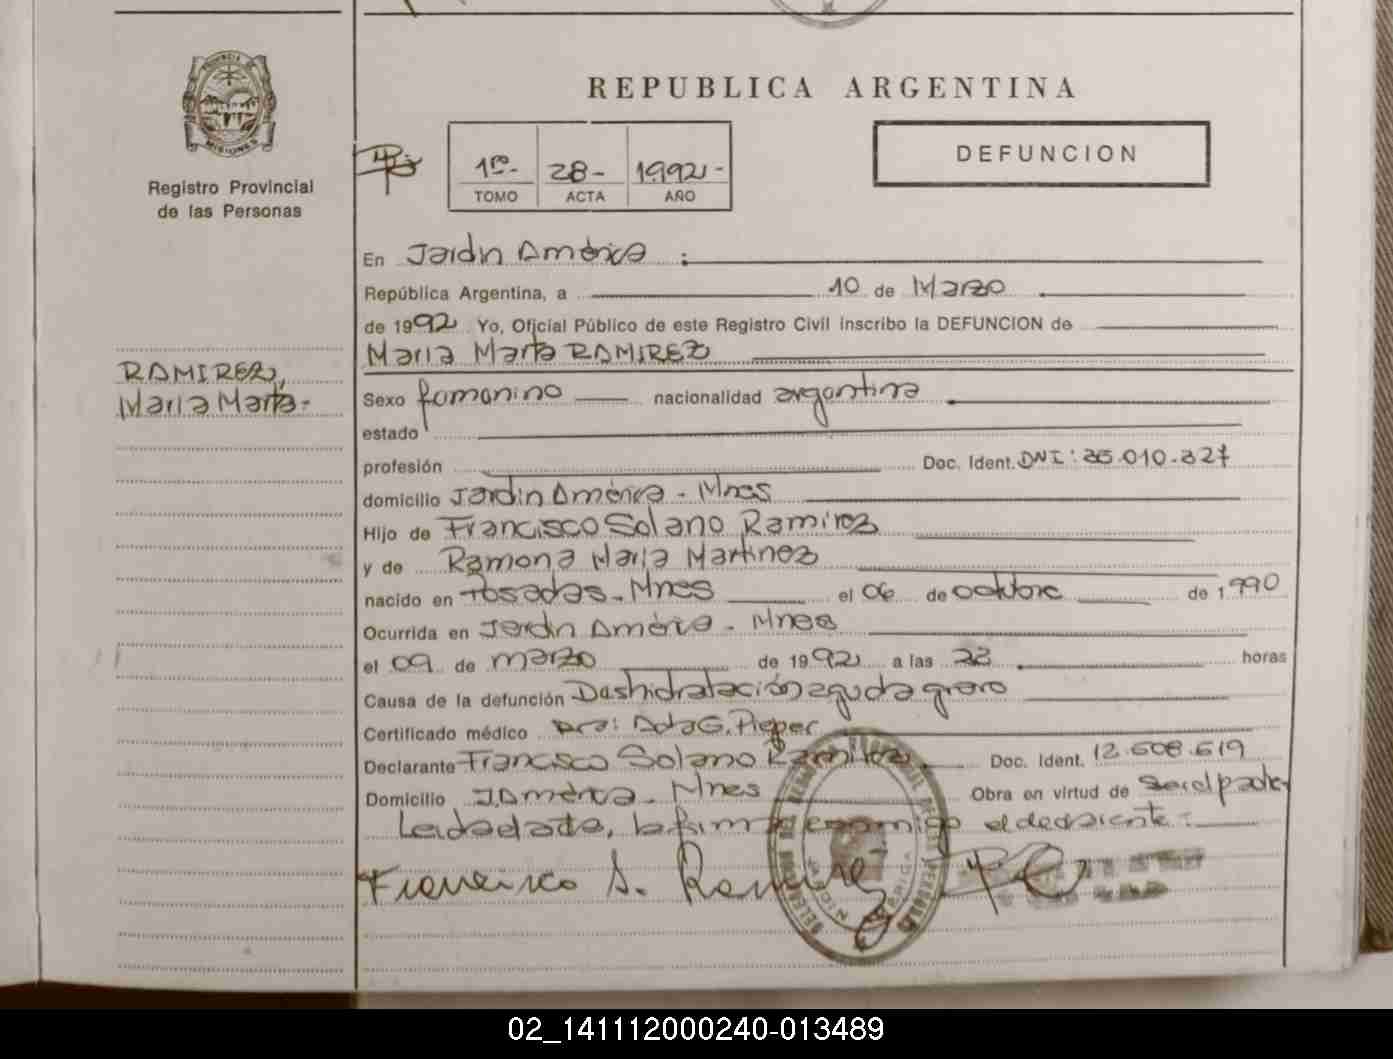 PROVINCIA DE
MISIONES
Registro Provincial
de las Personas
RAMIREZ,
María Marta-
REPUBLICA ARGENTINA
1ro- 28- 1992-
TOMO ACTA AÑO
DEFUNCION
En Jardín América :
República Argentina, a 10 de Marzo
de 1992 Yo, Oficial Público de este Registro Civil inscribo la DEFUNCION de
María Marta RAMIREZ
Sexo femenino nacionalidad argentina
estado
profesión Doc. Ident. DNI: 35.010.327
domicilio Jardín América - Mnes
Hijo de Francisco Solano Ramirez
y de Ramona María Martinez
nacido en Posadas - Mnes el 06 de octubre de 1990
Ocurrida en Jardín América - Mnes
el 09 de marzo de 1992 a las 23 horas
Causa de la defunción Deshidratación aguda grave
Certificado médico Dra: Ada G. Pieper
Declarante Francisco Solano Ramirez Doc. Ident. 12.608.619
Domicilio J. América - Mnes Obra en virtud de ser el padre
Leida el acta, la firma conmigo el declarante :
Francisco S. Ramirez
02_141112000240-013489